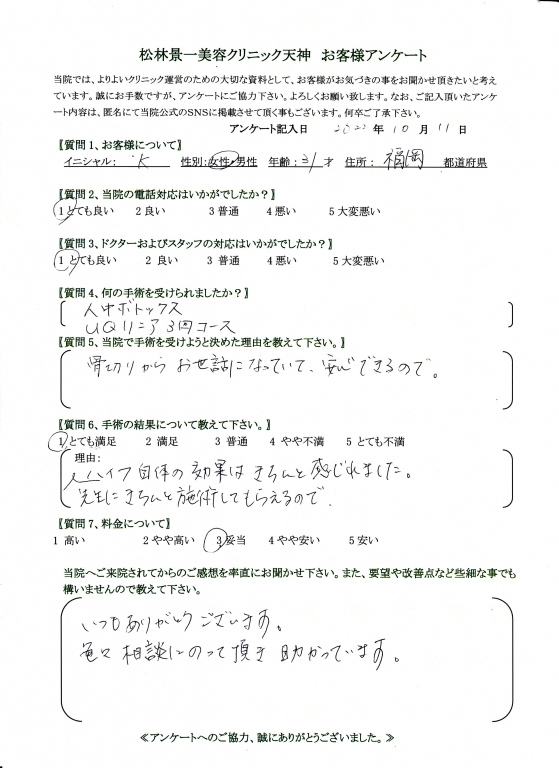 松林景一美容クリニック天神 お客様アンケート
当院では、よりよいクリニック運営のための大切な資料として、お客様がお気づきの事をお聞かせ頂きたいと考え
ています。誠にお手数ですが、アンケートにご協力下さい。よろしくお願い致します。なお、ご記入頂いたアンケ
ート内容は、匿名にて当院公式のSNSに掲載させて頂く事もございます。何卒ご了承下さい。
アンケート記入日 2022年 10月 11日
【質問1、お客様について】
イニシャル: K 性別:女性・男性 年齢:31才 住所:福岡 都道府県
【質問2、当院の電話対応はいかがでしたか?】
1とても良い 2良い 3普通 4悪い 5大変悪い
【質問3、ドクターおよびスタッフの対応はいかがでしたか?】
1とても良い 2良い 3普通 4悪い 5大変悪い
【質問4、何の手術を受けられましたか?】
人中ボトックス
UQリニア3回コース
【質問5、当院で手術を受けようと決めた理由を教えて下さい。】
骨切りからお世話になっていて、安心できるので。
【質問6、手術の結果について教えて下さい。】
1とても満足 2満足 3普通 4やや不満 5とても不満
理由:
ハイフ自体の効果はきちんと感じれました。
先生にきちんと施術してもらえるので.
【質問7、料金について】
1高い 2やや高い 3妥当 4やや安い 5安い
当院へご来院されてからのご感想を率直にお聞かせ下さい。また、要望や改善点など些細な事でも
構いませんので教えて下さい。
いつもありがとうございます。
色々相談にのって頂き助かっています。
≪アンケートへのご協力、誠にありがとうございました。≫